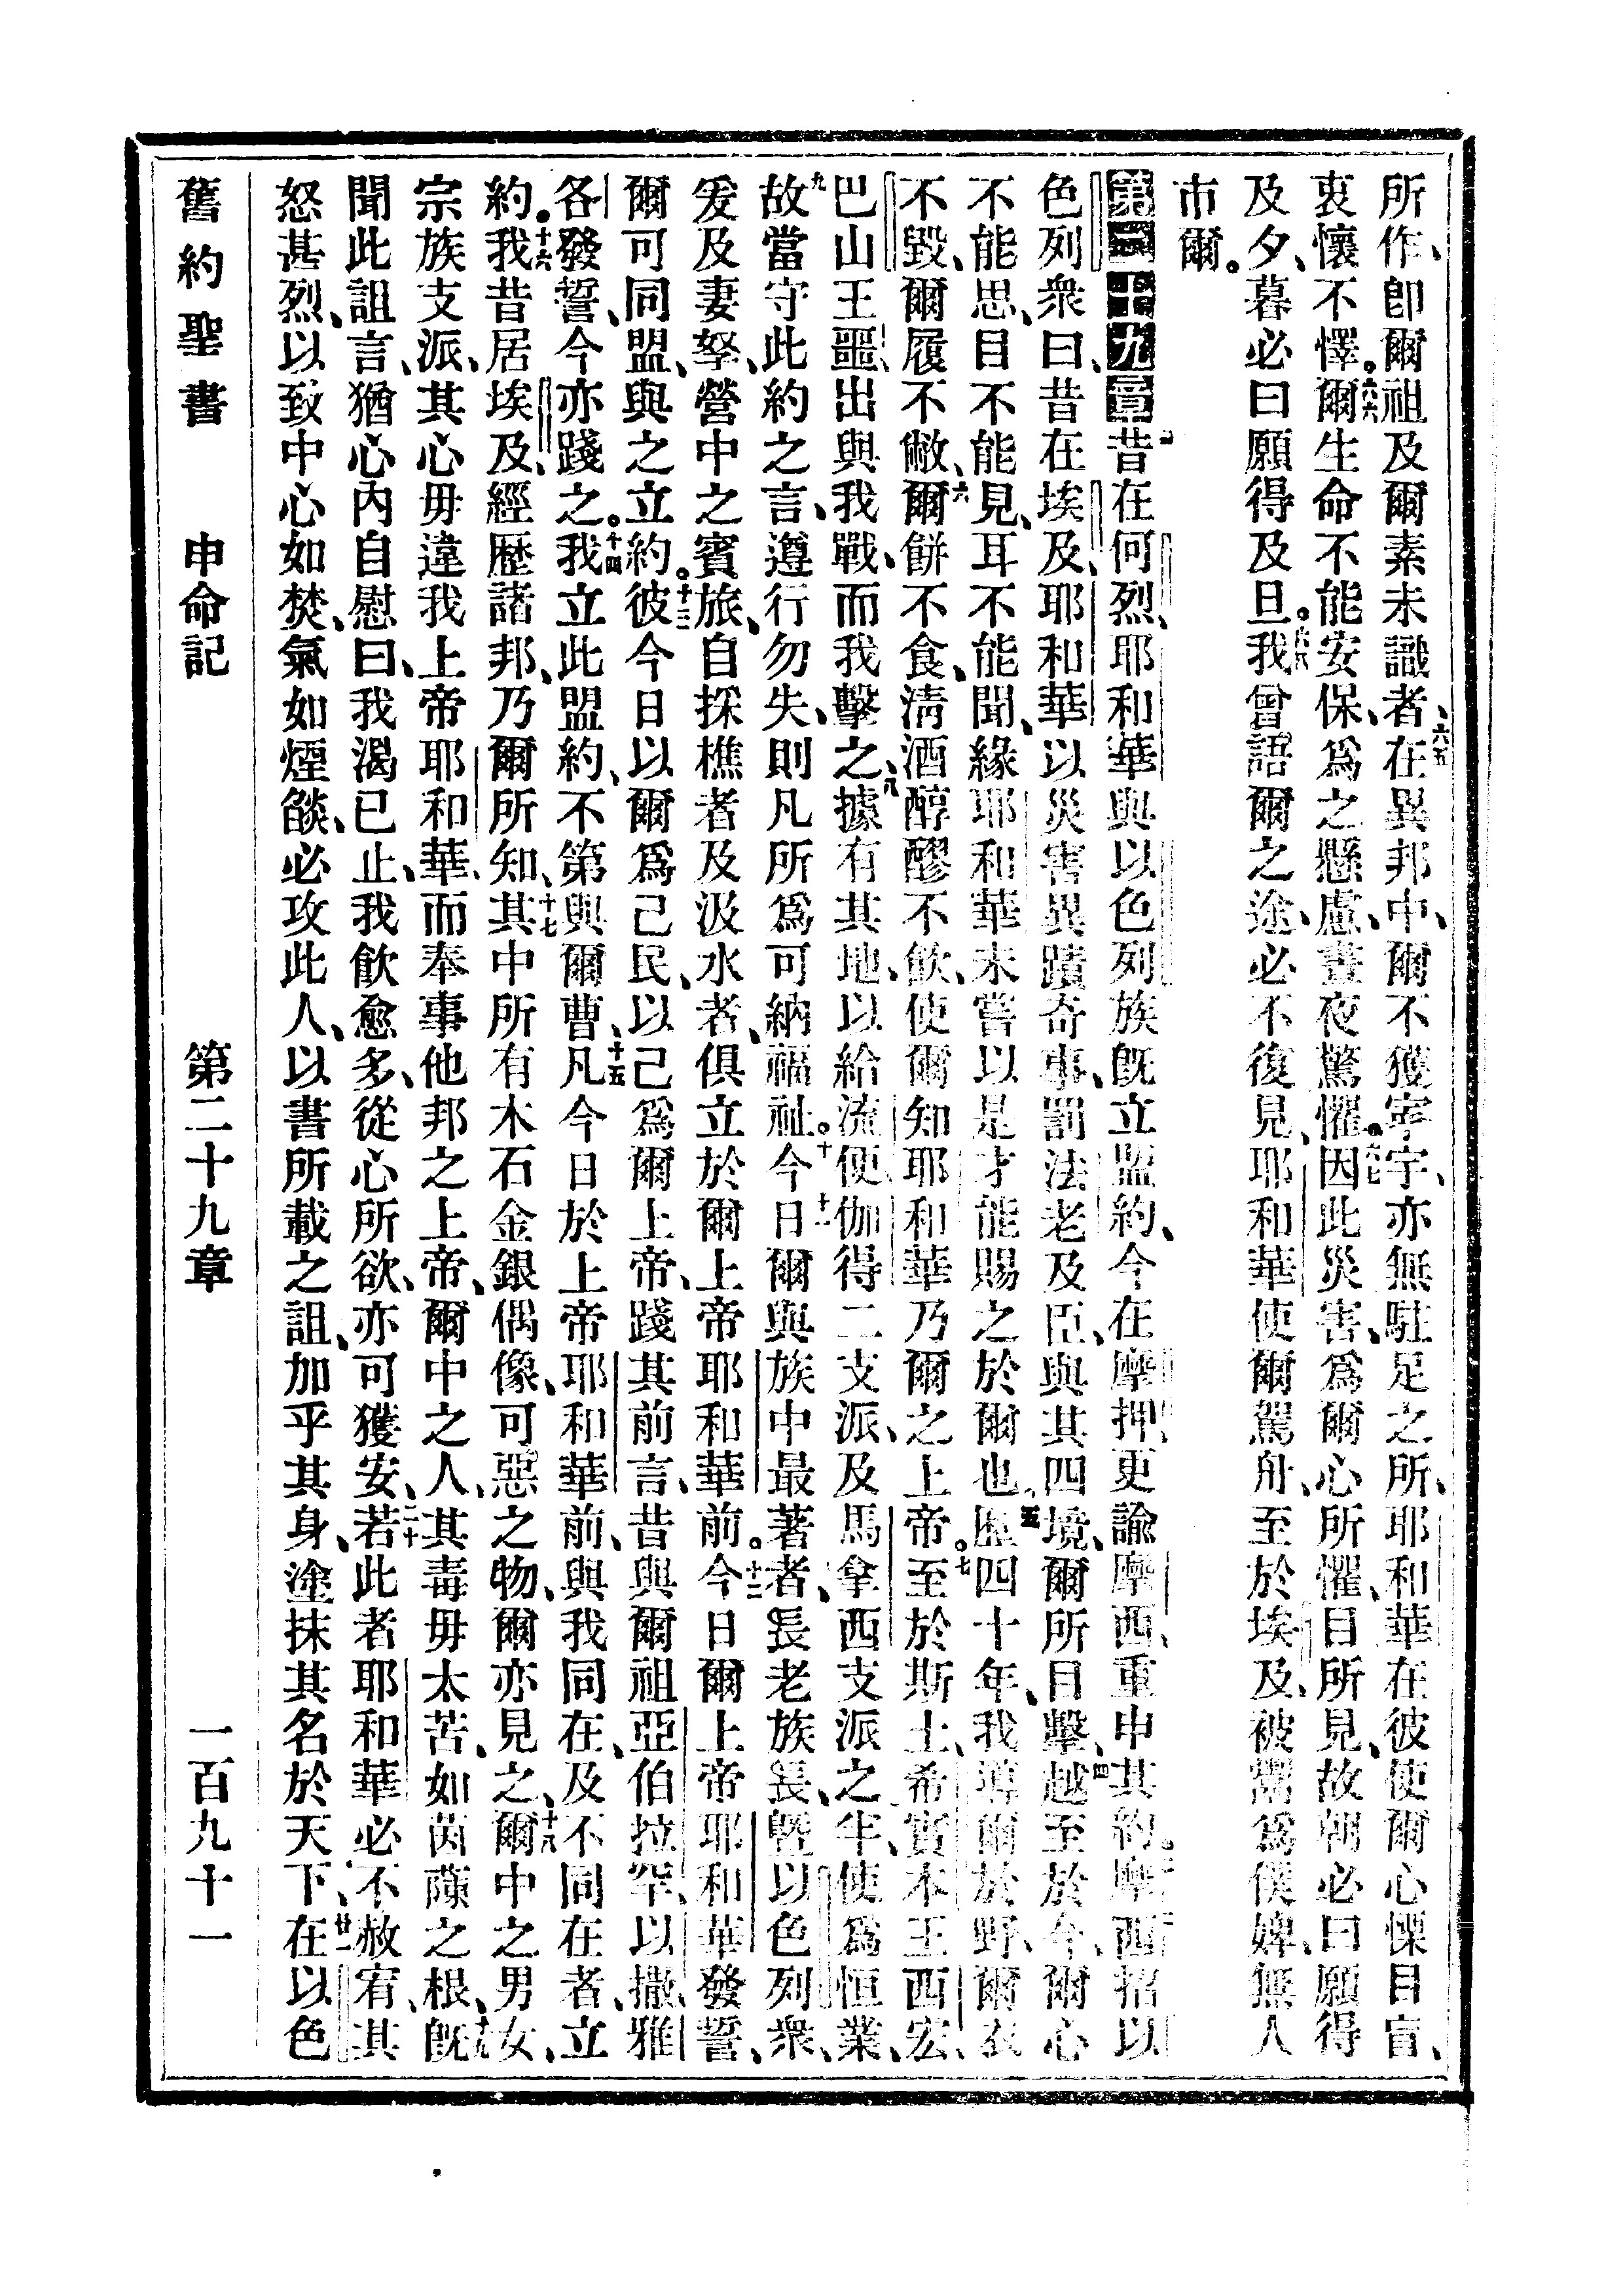 所作、卽爾祖及爾素未識者、六五在異邦中、爾不獲寧宇、亦無駐足之所、耶和華在彼使爾心慄目盲、
衷懷不懌。六六爾生命不能安保、爲之懸慮、晝夜驚懼。六七因此災害、爲爾心所懼、目所見、故朝必曰願得
及夕、暮必曰願得及旦。六八我曾語爾之途、必不復見、耶和華使爾駕舟、至於埃及、被鬻爲僕婢、無人
市爾。
第二十九章一昔在何烈、耶和華與以色列族既立盟約、今在摩押、更諭摩西、重申其約。二摩西招以
色列衆曰、昔在埃及、耶和華以災害異蹟奇事、罰法老及臣、與其四境、爾所目擊、四越至於今、爾心
不能思、目不能見、耳不能聞、緣耶和華未嘗以是才能賜之於爾也、五歷四十年、我導爾於野、爾衣
不毀、爾履不敝、六爾餅不食、淸酒醇醪不飮、使爾知耶和華乃爾之上帝。七至於斯土、希實本王西宏、
巴山王噩出與我戰、而我擊之、八據有其地、以給流便伽得二支派、及馬拿西支派之半、使爲恒業、
九故當守此約之言、遵行勿失、則凡所爲可納福祉。十今日十一爾與族中最著者、長老族長、曁以色列衆、
爰及妻孥、營中之賓旅、自採樵者及汲水者、俱立於爾上帝耶和華前。十二今日爾上帝耶和華發誓、
爾可同盟、與之立約。十三彼今日以爾爲己民、以己爲爾上帝、踐其前言、昔與爾祖亞伯拉罕、以撒、雅
各發誓、今亦踐之。十四我立此盟約、不第與爾曹、十五凡今日於上帝耶和華前、與我同在、及不同在者、立
約。十六我昔居埃及、經歷諸邦、乃爾所知、十七其中所有木石金銀偶像、可惡之物、爾亦見之、十八爾中之男女、
宗族支派、其心毋違我上帝耶和華、而奉事他邦之上帝、爾中之人、其毒毋太苦、如茵蔯之根、十九既
聞此詛言、猶心內自慰曰、我渴已止、我飮愈多、從心所欲、亦可獲安、二十若此者耶和華必不赦宥、其
怒甚烈、以致中心如焚、氣如煙燄、必攻此人、以書所載之詛、加乎其身、塗抹其名於天下、廿一在以色
舊約聖書 申命記 第二十九章 一百九十一